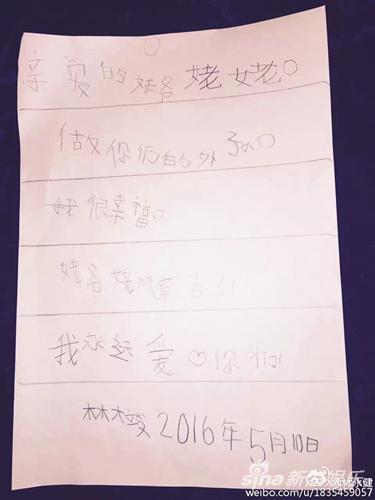 亲爱的姥爷姥姥○
做你们的外孙○
我很幸福○
姥爷姥姥辛苦
我永远爱♡你们!
林大竣2016年5月10日
sina新浪娱乐
@佟永健
weibo.com/u/1835459057